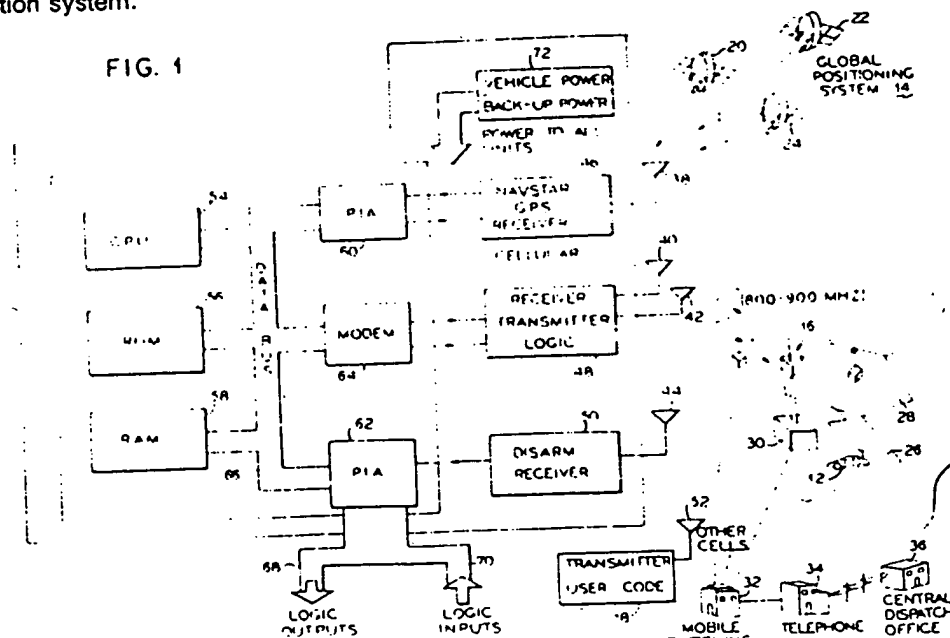 tion system.
FIG. 1
72
VEHICLE POWER
BACK-UP POWER
POWER TO ALL
UNITS
20
22
GLOBAL
POSITIONING
SYSTEM 14
24
54
CPU
PIA
60
46
NAVSTAR
GPS
RECEIVER
38
CELLULAR
40
56
ROM
DATA BUS
MODEM
64
RECEIVER
TRANSMITTER
LOGIC
48
42
(800-900 MHZ)
16
58
RAM
66
62
PIA
50
DISARM
RECEIVER
44
30
28
12
26
68
70
LOGIC
OUTPUTS
LOGIC
INPUTS
52
TRANSMITTER
USER CODE
OTHER
CELLS
32
MOBILE
34
TELEPHONE
36
CENTRAL
DISPATCH
OFFICE